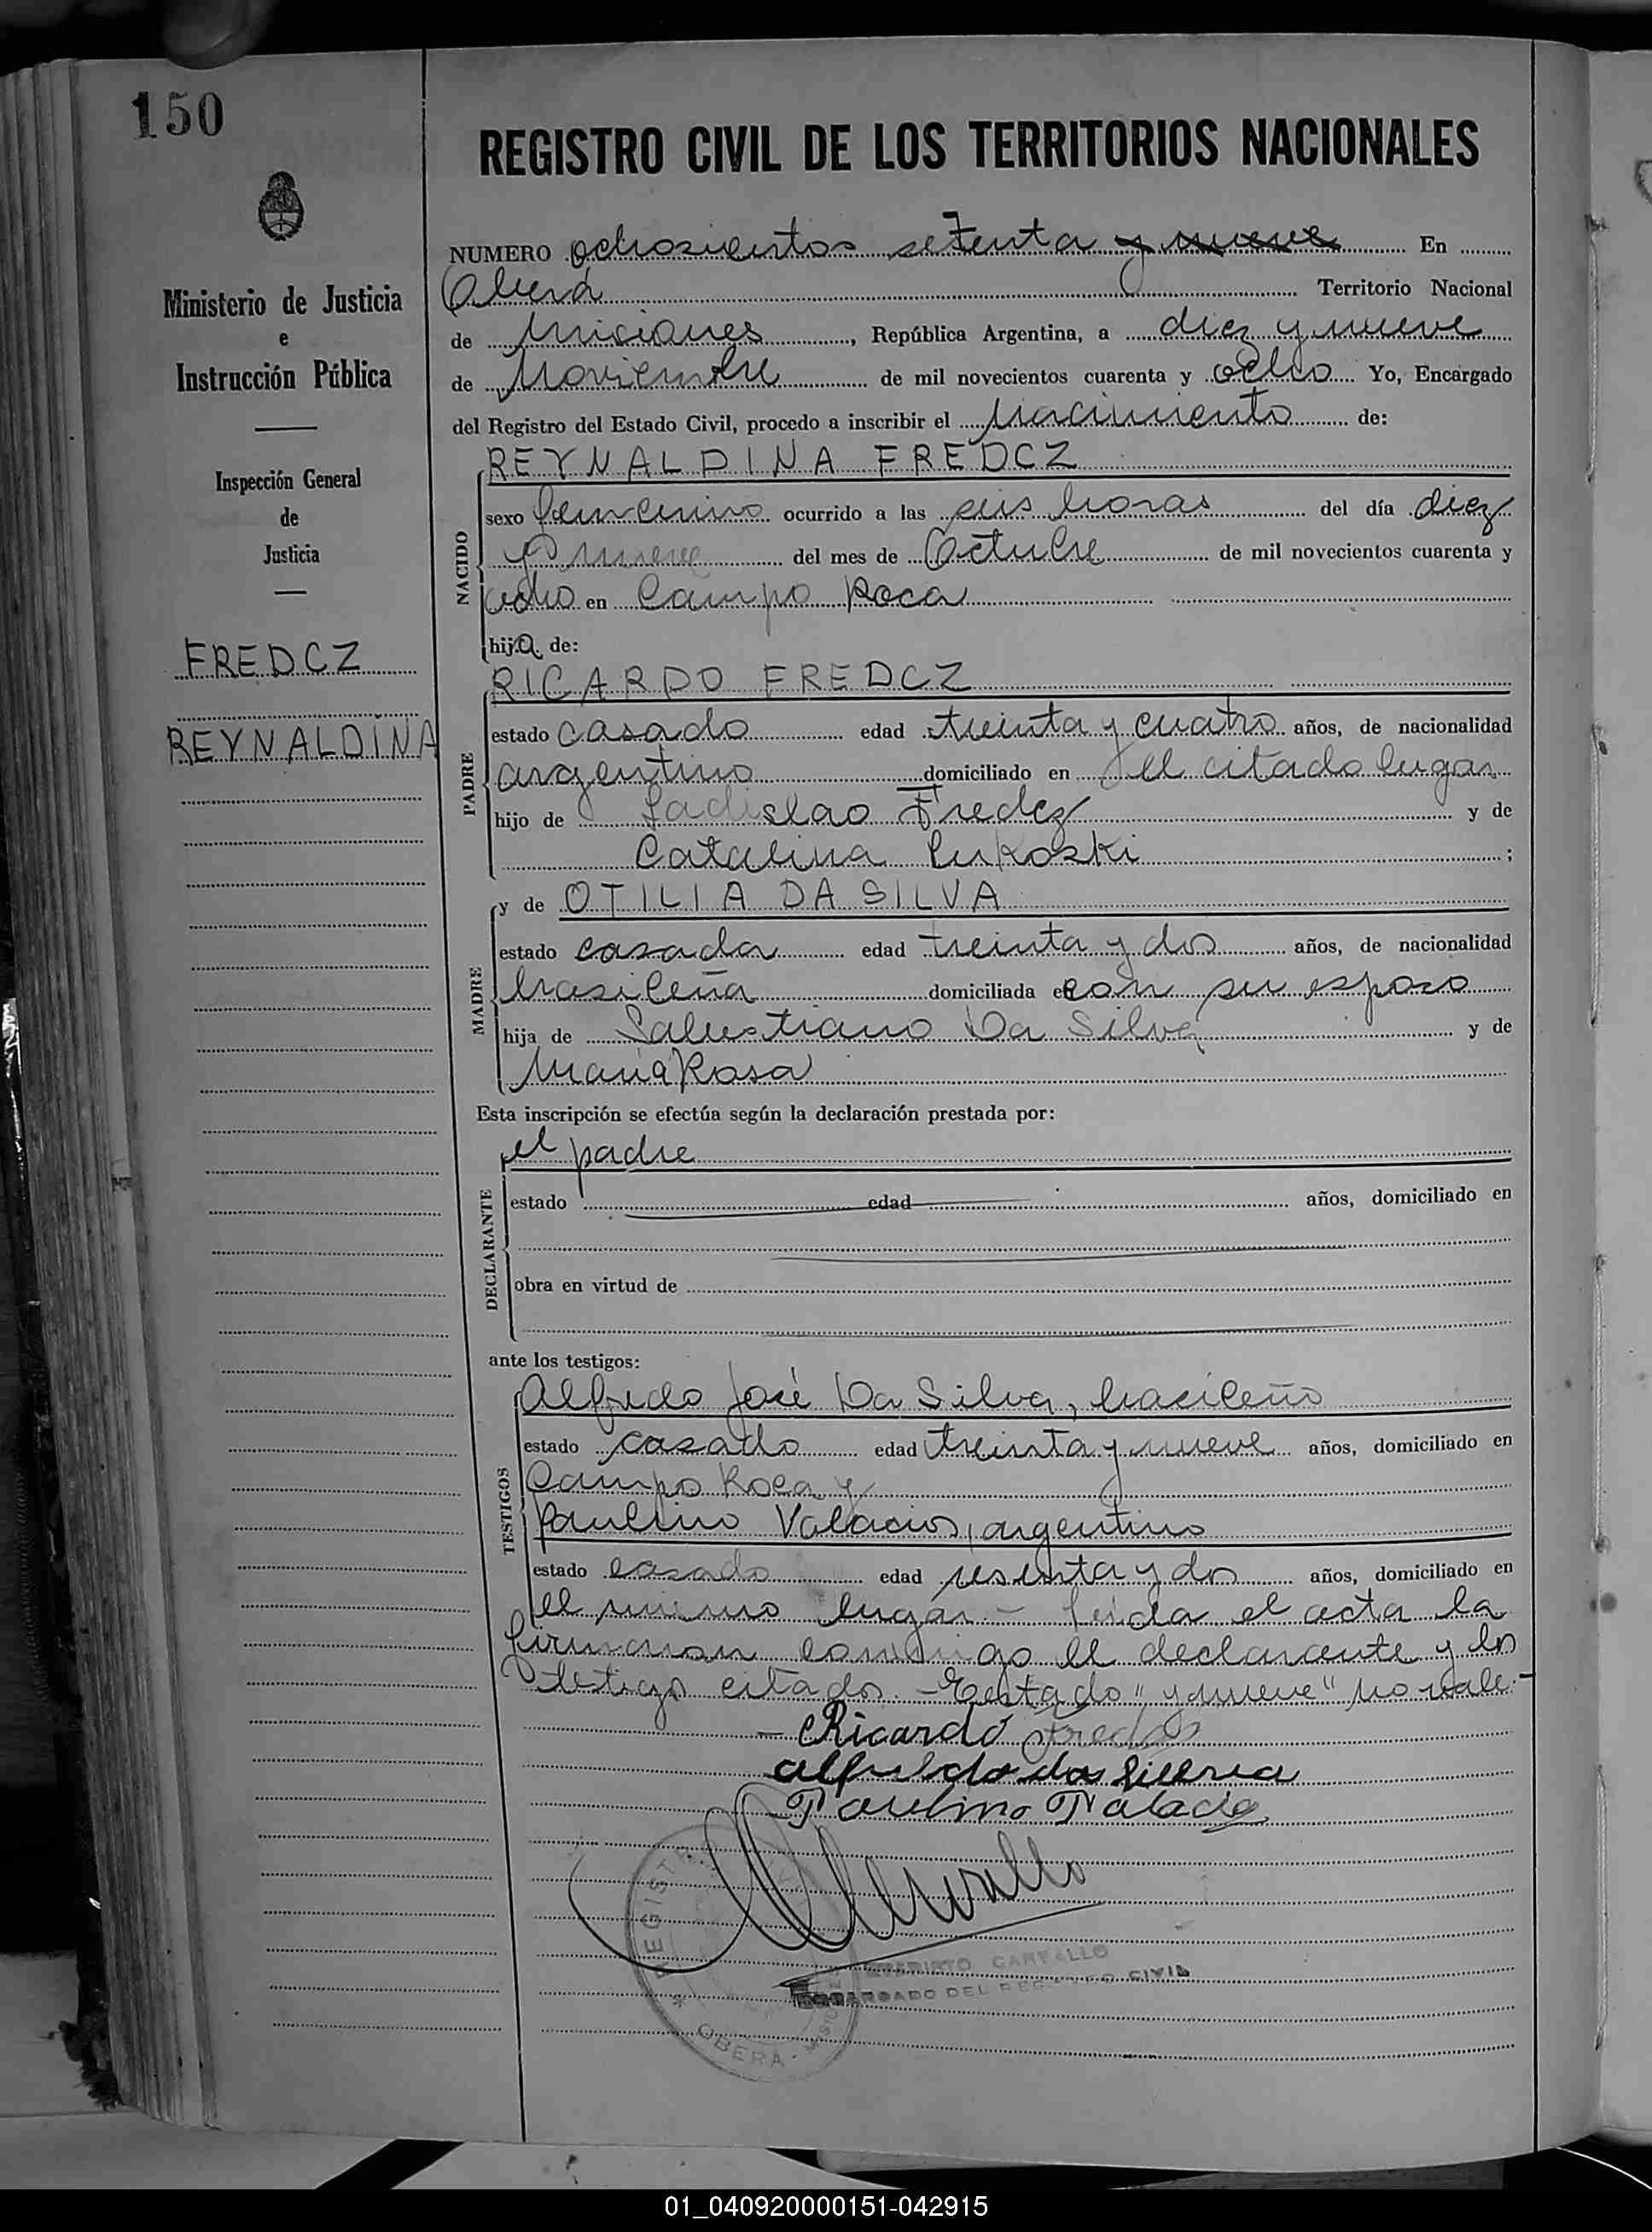 150
REGISTRO CIVIL DE LOS TERRITORIOS NACIONALES
Ministerio de Justicia
e
Instrucción Pública
Inspección General
de
Justicia
FREDCZ
REYNALDINA
NUMERO ochosientos setenta y nueve En
Oberá Territorio Nacional
de Misiones, República Argentina, a diez y nueve
de Noviembre de mil novecientos cuarenta y ocho Yo, Encargado
del Registro del Estado Civil, procedo a inscribir el Nacimiento de:
NACIDO
REYNALDINA FREDCZ
sexo femenino ocurrido a las seis horas del día diez
y nueve del mes de Octubre de mil novecientos cuarenta y
ocho en Campo Roca
hija de:
PADRE
RICARDO FREDCZ
estado casado edad treinta y cuatro años, de nacionalidad
argentino domiciliado en el citado lugar
hijo de Ladislao Fredcz y de
Catalina Lukoski ;
MADRE
y de OTILIA DA SILVA
estado casada edad treinta y dos años, de nacionalidad
brasileña domiciliada en con su esposo
hija de Salustiano Da Silva y de
María Rosa
Esta inscripción se efectúa según la declaración prestada por:
DECLARANTE
el padre
estado edad años, domiciliado en
obra en virtud de
ante los testigos:
TESTIGOS
Alfredo José Da Silva, brasileño
estado casado edad treinta y nueve años, domiciliado en
Campo Roca y
Paulino Valacios, argentino
estado casado edad sesenta y dos años, domiciliado en
el mismo lugar - Leida el acta la
firmaron conmigo el declarante y los
testigos citados. - Testado "y nueve" no vale.-
- Ricardo Fredcz
alfredo da Silva
Paulino Palacio
REGISTR
CARVALLO
ENCARGADO DEL REGISTRO CIVIL
* OBERA - MISIONES
01_040920000151-042915